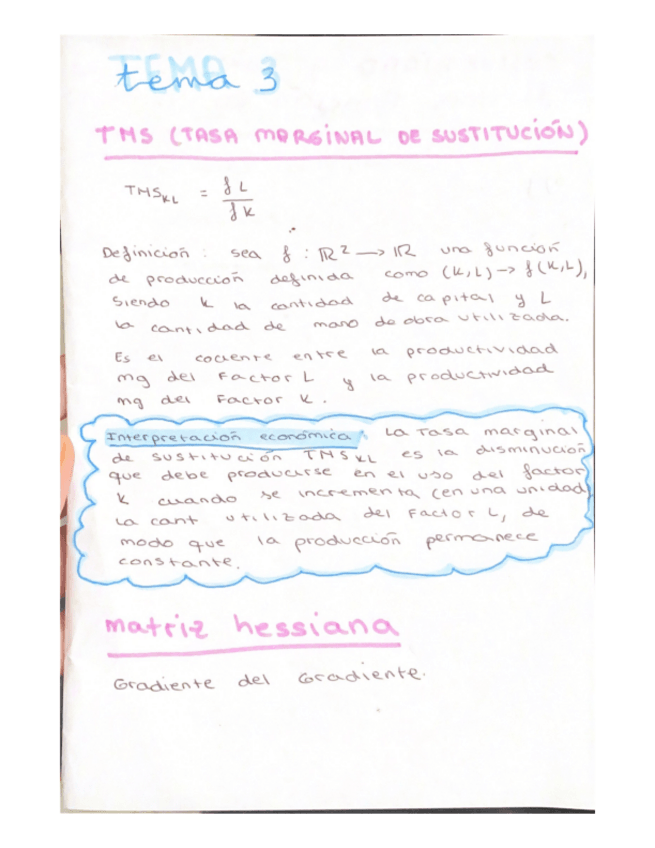 TEMA 3
tema 3
TMS (TASA MARGINAL DE SUSTITUCIÓN)
TMS_KL = fL / fK
Definición : sea f : ℝ² → ℝ una función
de producción definida como (K,L) → f(K,L),
siendo K la cantidad de capital y L
la cantidad de mano de obra utilizada.
Es el cociente entre la productividad
mg del Factor L y la productividad
mg del Factor K.
Interpretación económica : La Tasa marginal
de sustitución TMS_KL es la disminución
que debe producirse en el uso del factor
K cuando se incrementa (en una unidad)
la cant utilizada del Factor L, de
modo que la producción permanece
constante.
matriz hessiana
Gradiente del Gradiente.